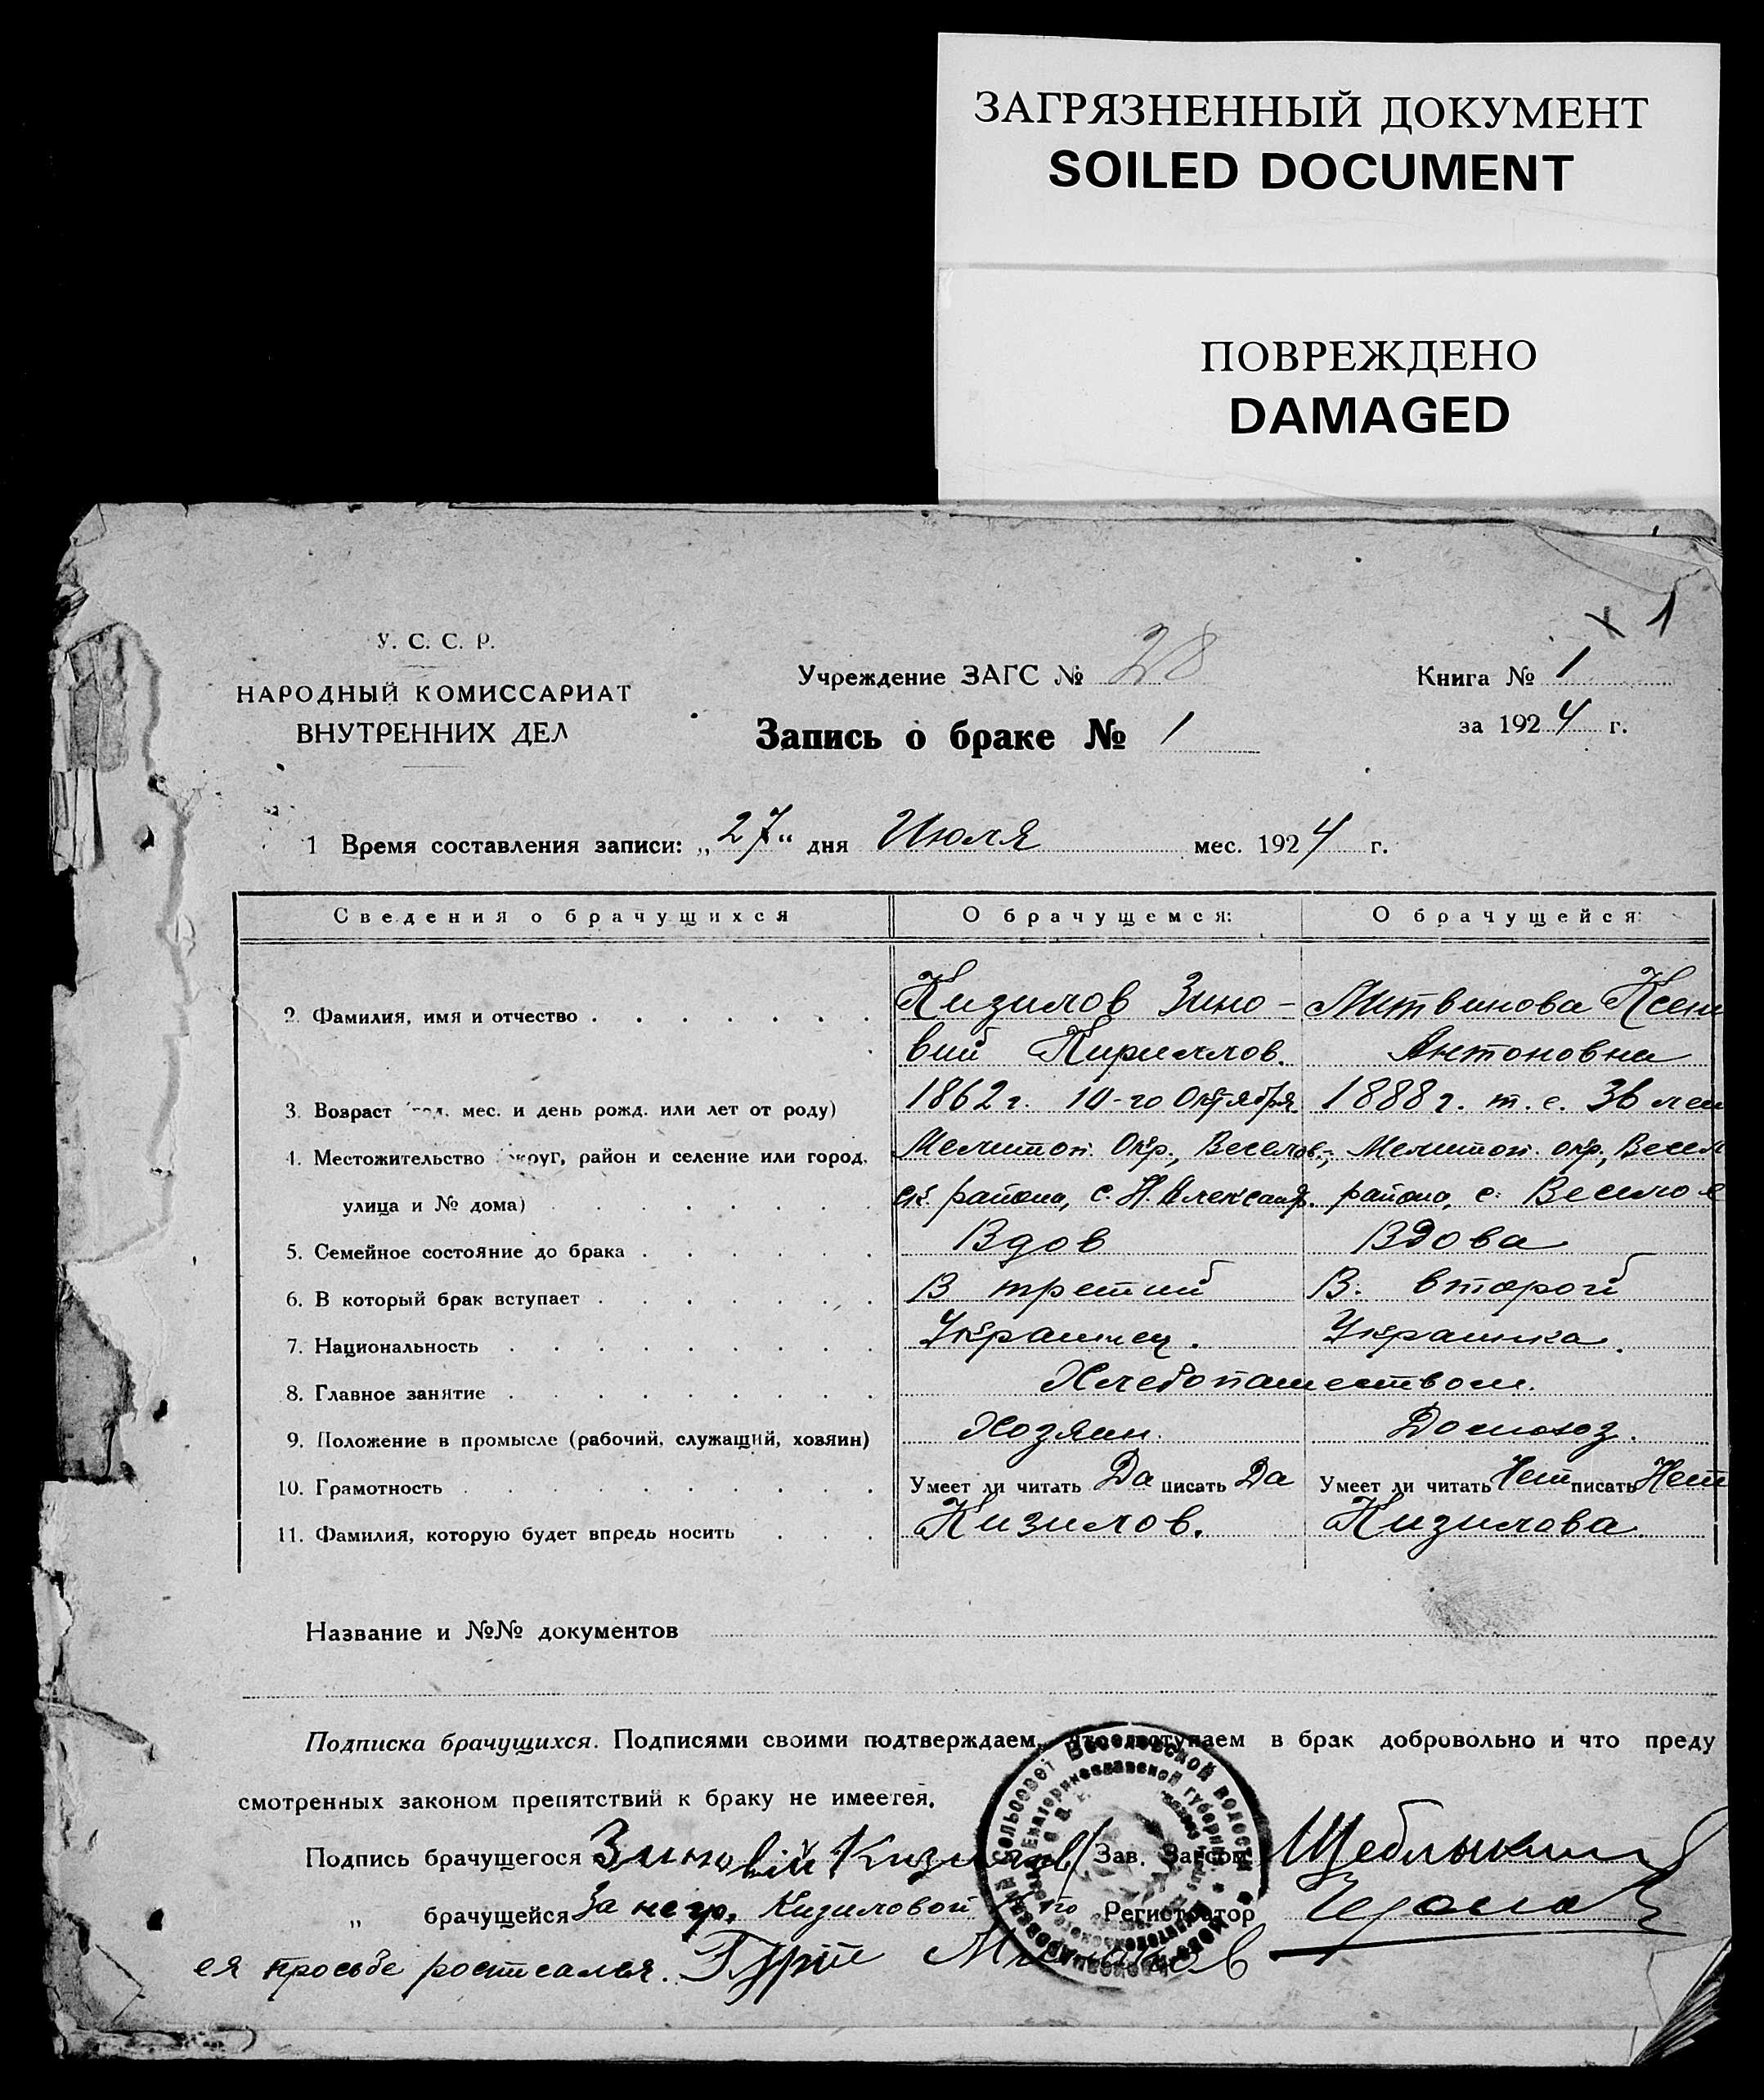 ЗАГРЯЗНЕННЫЙ ДОКУМЕНТ
SOILED DOCUMENT
ПОВРЕЖДЕНО
DAMAGED
х 1
У. С. С. Р.
НАРОДНЫЙ КОМИССАРИАТ
ВНУТРЕННИХ ДЕЛ
Учреждение ЗАГС № 28
Книга № 1
за 1924 г.
Запись о браке № 1
1 Время составления записи: „27“ дня Июля мес. 1924 г.
Сведения о брачущихся О брачущемся: О брачущейся:
2. Фамилия, имя и отчество Кизилов Зино- Литвинова Ксени
вий Кириллов. Антоновна
3. Возраст (год. мес. и день рожд. или лет от роду) 1862 г. 10-го Октября 1888 г. т. е. 36 лет
4. Местожительство округ, район и селение или город, Мелитоп. Окр., Веселов- Мелитоп. окр., Весел
улица и № дома) ск. района, с. Н. Александ. района, с. Веселое
5. Семейное состояние до брака Вдов Вдова
6. В который брак вступает В третий В. второй
7. Национальность Украинец. Украинка.
8. Главное занятие Хлебопашеством.
9. Положение в промысле (рабочий, служащий, хозяин) Хозяин. Домохоз.
10. Грамотность Умеет ли читать Да писать Да Умеет ли читать Нет писать Нет
11. Фамилия, которую будет впредь носить Кизилов. Кизилова
Название и №№ документов
Подписка брачущихся. Подписями своими подтверждаем, что вступаем в брак добровольно и что преду
смотренных законом препятствий к браку не имеется.
Подпись брачущегося Зиновій Кизилов Зав. Загсом Щеблыкин
„ брачущейся За негр. Кизиловой по Регистратор
ея просьбе росписался. Гурій
сельсовет Веселовской волости
Екатеринославской губернии